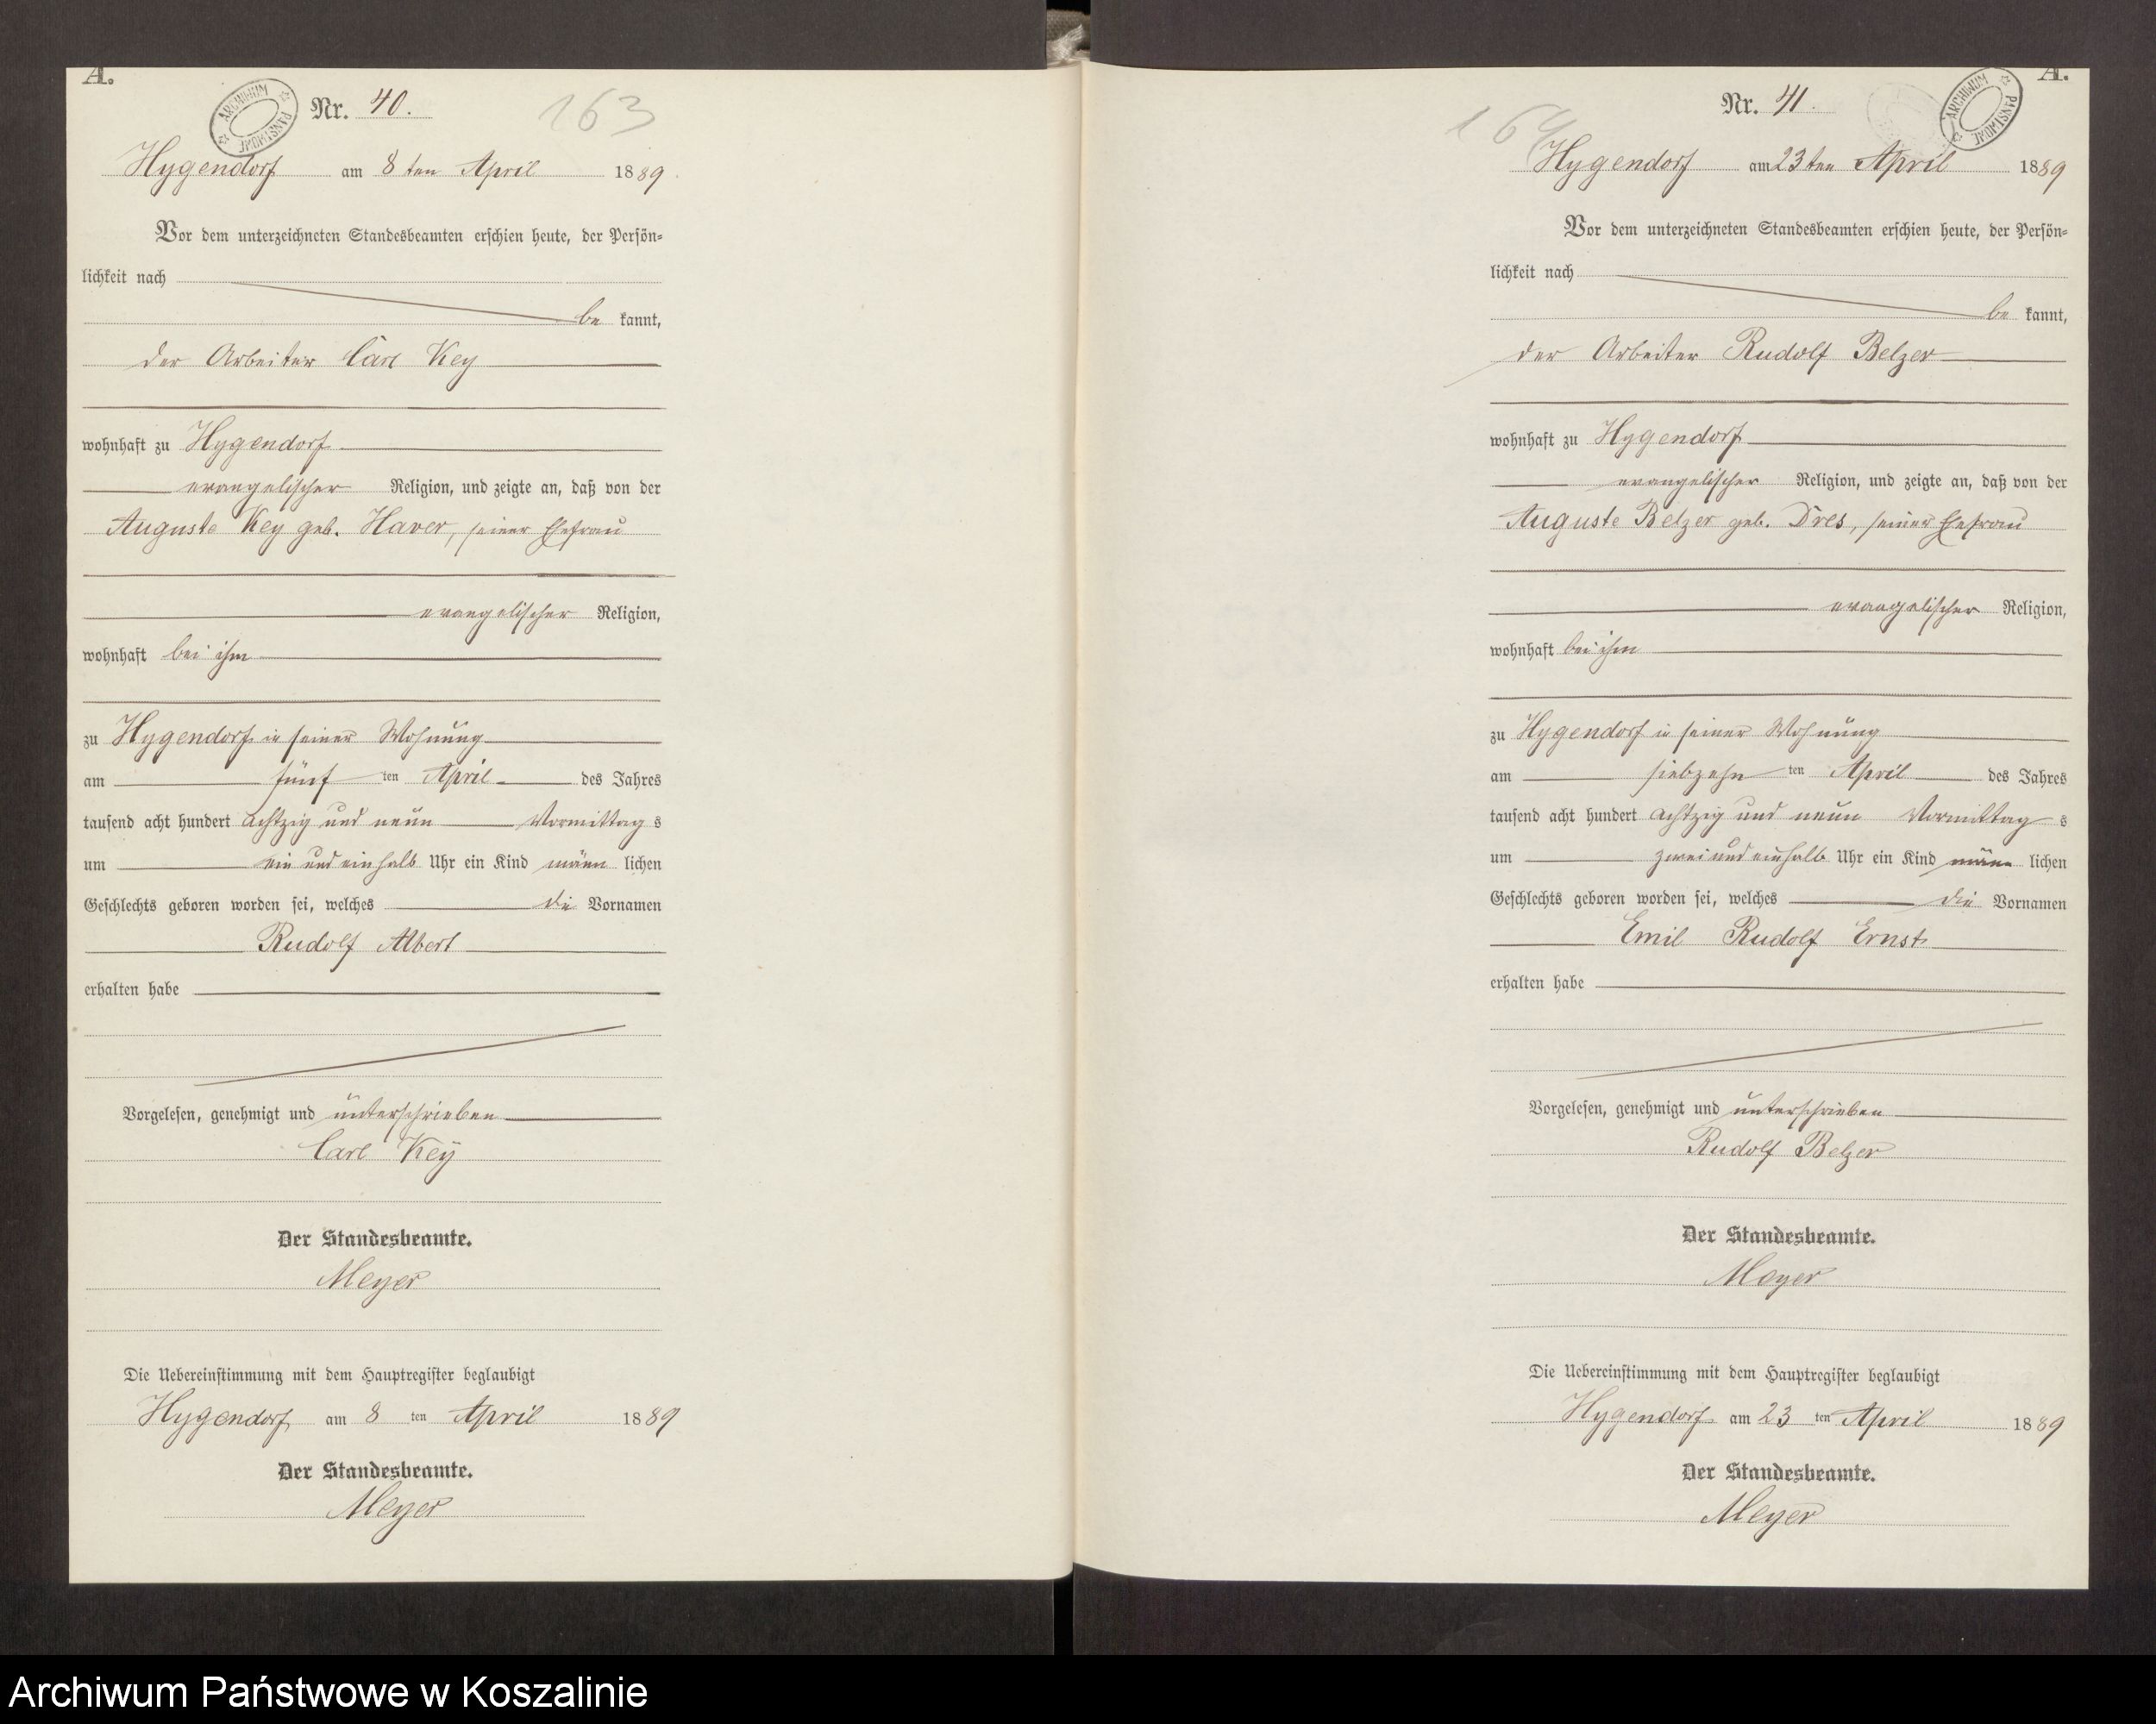 A.
ARCHIWUM PAŃSTWOWE
Nr. 40.
163
Hygendorf am 8ten April 1889
Vor dem unterzeichneten Standesbeamten erschien heute, der Persön-
lichkeit nach
be kannt,
der Arbeiter Carl Key
wohnhaft zu Hygendorf
evangelischer Religion, und zeigte an, daß von der
Auguste Key geb. Haver, seiner Ehefrau
evangelischer Religion,
wohnhaft bei ihm
zu Hygendorf in seiner Wohnung
am fünf ten April des Jahres
tausend acht hundert achtzig und neun Vormittag s
um ein und einhalb Uhr ein Kind männ lichen
Geschlechts geboren worden sei, welches die Vornamen
Rudolf Albert
erhalten habe
Vorgelesen, genehmigt und unterschrieben
Carl Key
Der Standesbeamte.
Meyer
Die Uebereinstimmung mit dem Hauptregister beglaubigt
Hygendorf am 8 ten April 1889
Der Standesbeamte.
Meyer
A.
ARCHIWUM PAŃSTWOWE
Nr. 41.
164
Hygendorf am 23ten April 1889
Vor dem unterzeichneten Standesbeamten erschien heute, der Persön-
lichkeit nach
be kannt,
der Arbeiter Rudolf Belzer
wohnhaft zu Hygendorf
evangelischer Religion, und zeigte an, daß von der
Auguste Belzer geb. Dres, seiner Ehefrau
evangelischer Religion,
wohnhaft bei ihm
zu Hygendorf in seiner Wohnung
am siebzehn ten April des Jahres
tausend acht hundert achtzig und neun Vormittag s
um zwei und einhalb Uhr ein Kind männ lichen
Geschlechts geboren worden sei, welches die Vornamen
Emil Rudolf Ernst
erhalten habe
Vorgelesen, genehmigt und unterschrieben
Rudolf Belzer
Der Standesbeamte.
Meyer
Die Uebereinstimmung mit dem Hauptregister beglaubigt
Hygendorf am 23 ten April 1889
Der Standesbeamte.
Meyer
Archiwum Państwowe w Koszalinie